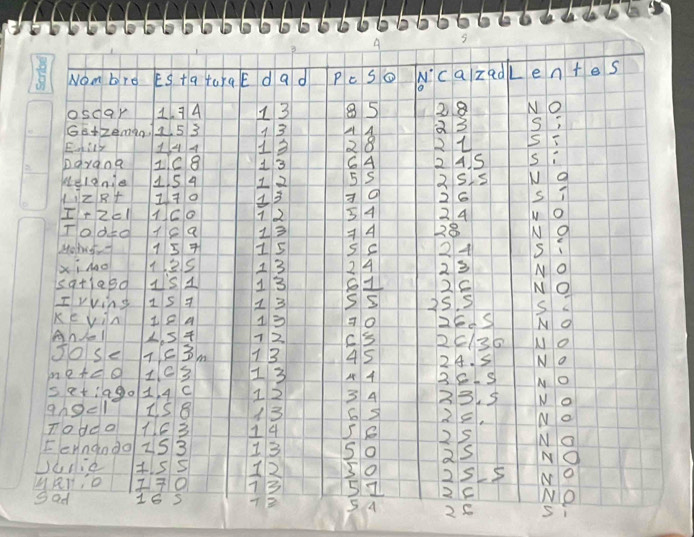 Scribe
Nombre Estatura Edad Peso N° Calzad Lentes
oscar 1.74 13 85 28 NO
Gatzeman 1.53 13 44 23 Si
Emily 144 13 28 21 Si
Dayana 168 13 64 24.5 Si
Melanie 154 12 55 25.5 NO
Lizet 170 13 70 26 Si
Itzel 1.60 12 54 24 NO
Todeo 169 13 74 28 NO
157 15 56 24 Si
ximo 1.35 13 24 23 NO
satiago 151 13 61 26 NO
Irving 157 13 55 25.5 Si
Kevin 13 70 26.5 NO
Angel 1.57 12 63 26/30 NO
Jose 1.63m 13 45 24.5 No
mateo 1.63 13 44 26.5 NO
satiago 1.46 12 34 23.5 NO
angel 158 13 65 26. NO
Todeo 1.63 14 56 25 NO
Fernando 153 13 50 25 NO
Julie 155 12 50 25.5 NO
Mario 170 13 51 26 NO
Sad 165 13 54 26 Si